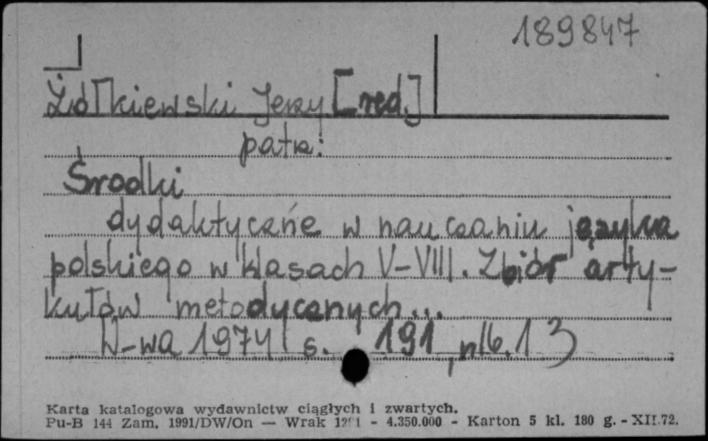 189847
Żółkiewski Jerzy [red.]
patrz:
Środki
dydaktyczne w nauczaniu języka
polskiego w klasach V-VIII. Zbiór arty-
kułów metodycznych...
W-wa 1974 s. 191, nlb. 13
Karta katalogowa wydawnictw ciągłych i zwartych.
Pu-B 144 Zam. 1991/DW/On — Wrak - 4.350.000 - Karton 5 kl. 180 g. - XII.72.